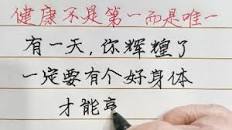 健康不是第一而是唯一
有一天，你辉煌了
一定要有个好身体
才能享